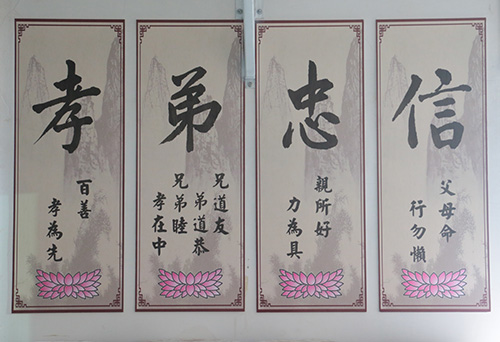 孝
百善
孝為先
弟
兄道友
弟道恭
兄弟睦
孝在中
忠
親所好
力為具
信
父母命
行勿懶